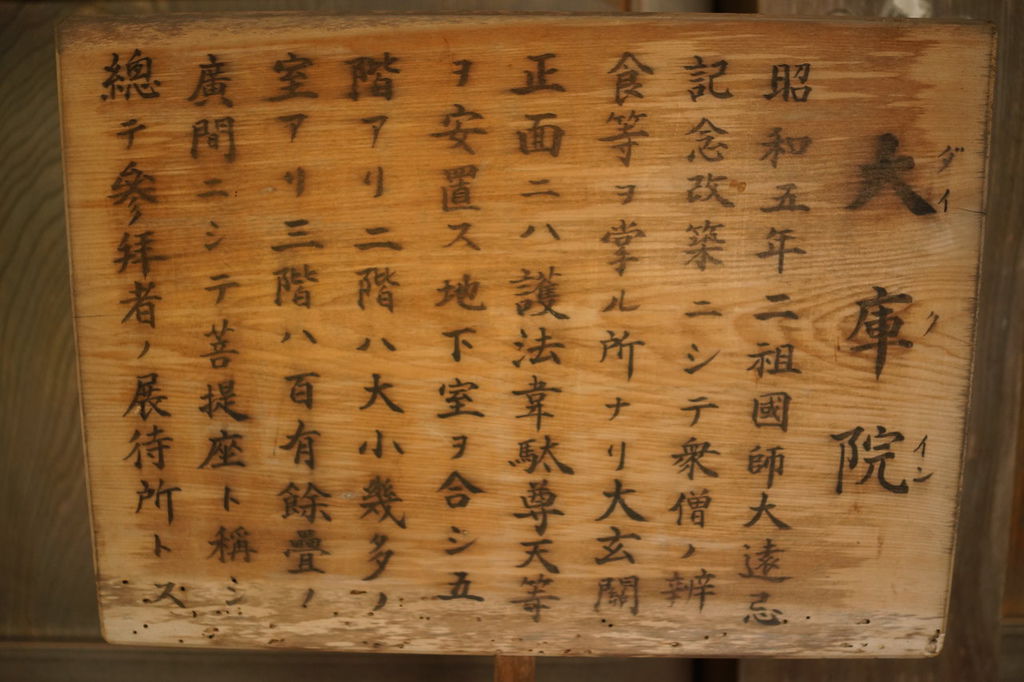 大庫院
ダイ ク イン
昭和五年二祖國師大遠忌
記念改築ニシテ衆僧ノ辨
食等ヲ掌ル所ナリ大玄關
正面ニハ護法韋駄尊天等
ヲ安置ス地下室ヲ合シ五
階アリ二階ハ大小幾多ノ
室アリ三階ハ百有餘疊ノ
廣間ニシテ菩提座ト稱シ
總テ參拜者ノ展待所トス